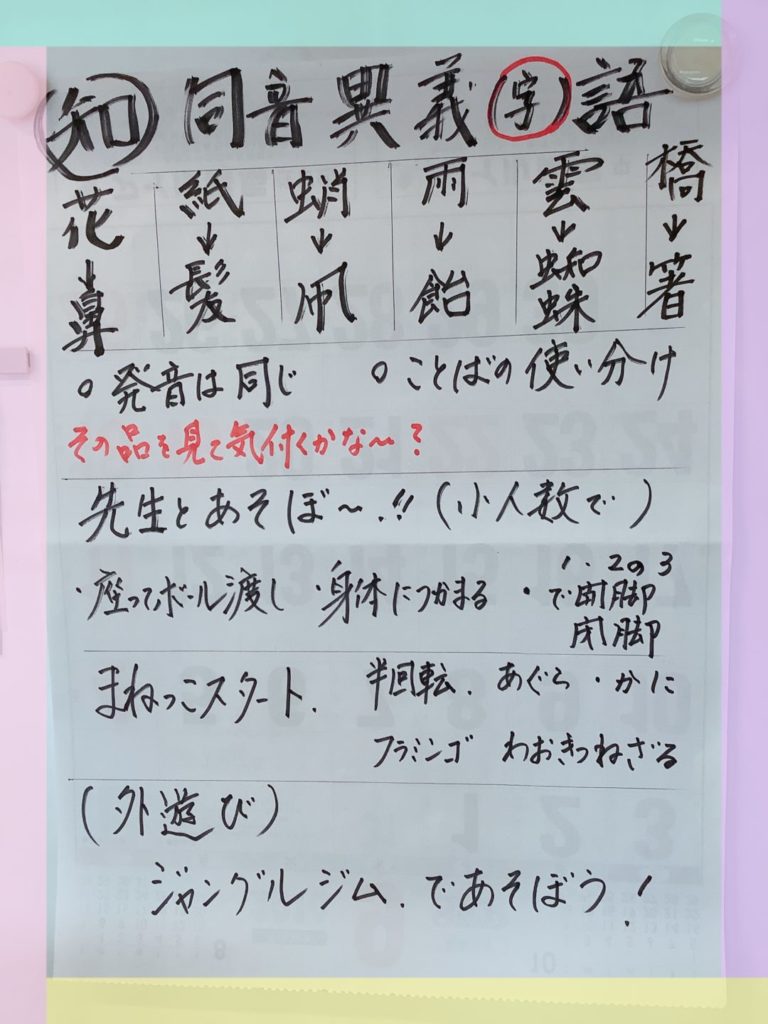 知 同音異義字語
花→鼻
紙→髪
蛸→凧
雨→飴
雲→蜘蛛
橋→箸
○発音は同じ ○ことばの使い分け
その品を見て気付くかな〜?
先生とあそぼ〜.!!(小人数で)
・座ってボール渡し ・身体につかまる ・1.2の3で開脚
閉脚
まねっこスタート. 半回転.あぐら・かに
フラミンゴ わおきつねざる
(外遊び)
ジャングルジム.であそぼう!